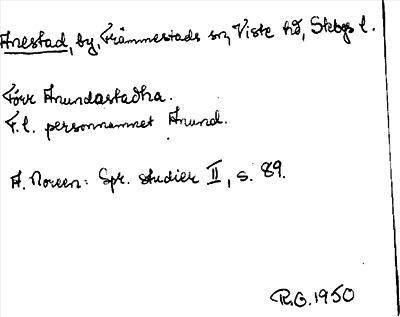 Anestad, by, Främmestads sn, Viste hd, Skbgs l.
Förr Anundastadha.
F.l. personnamnet Anund.
A. Noreen: Spr. studier II, s. 89.
R.O. 1950